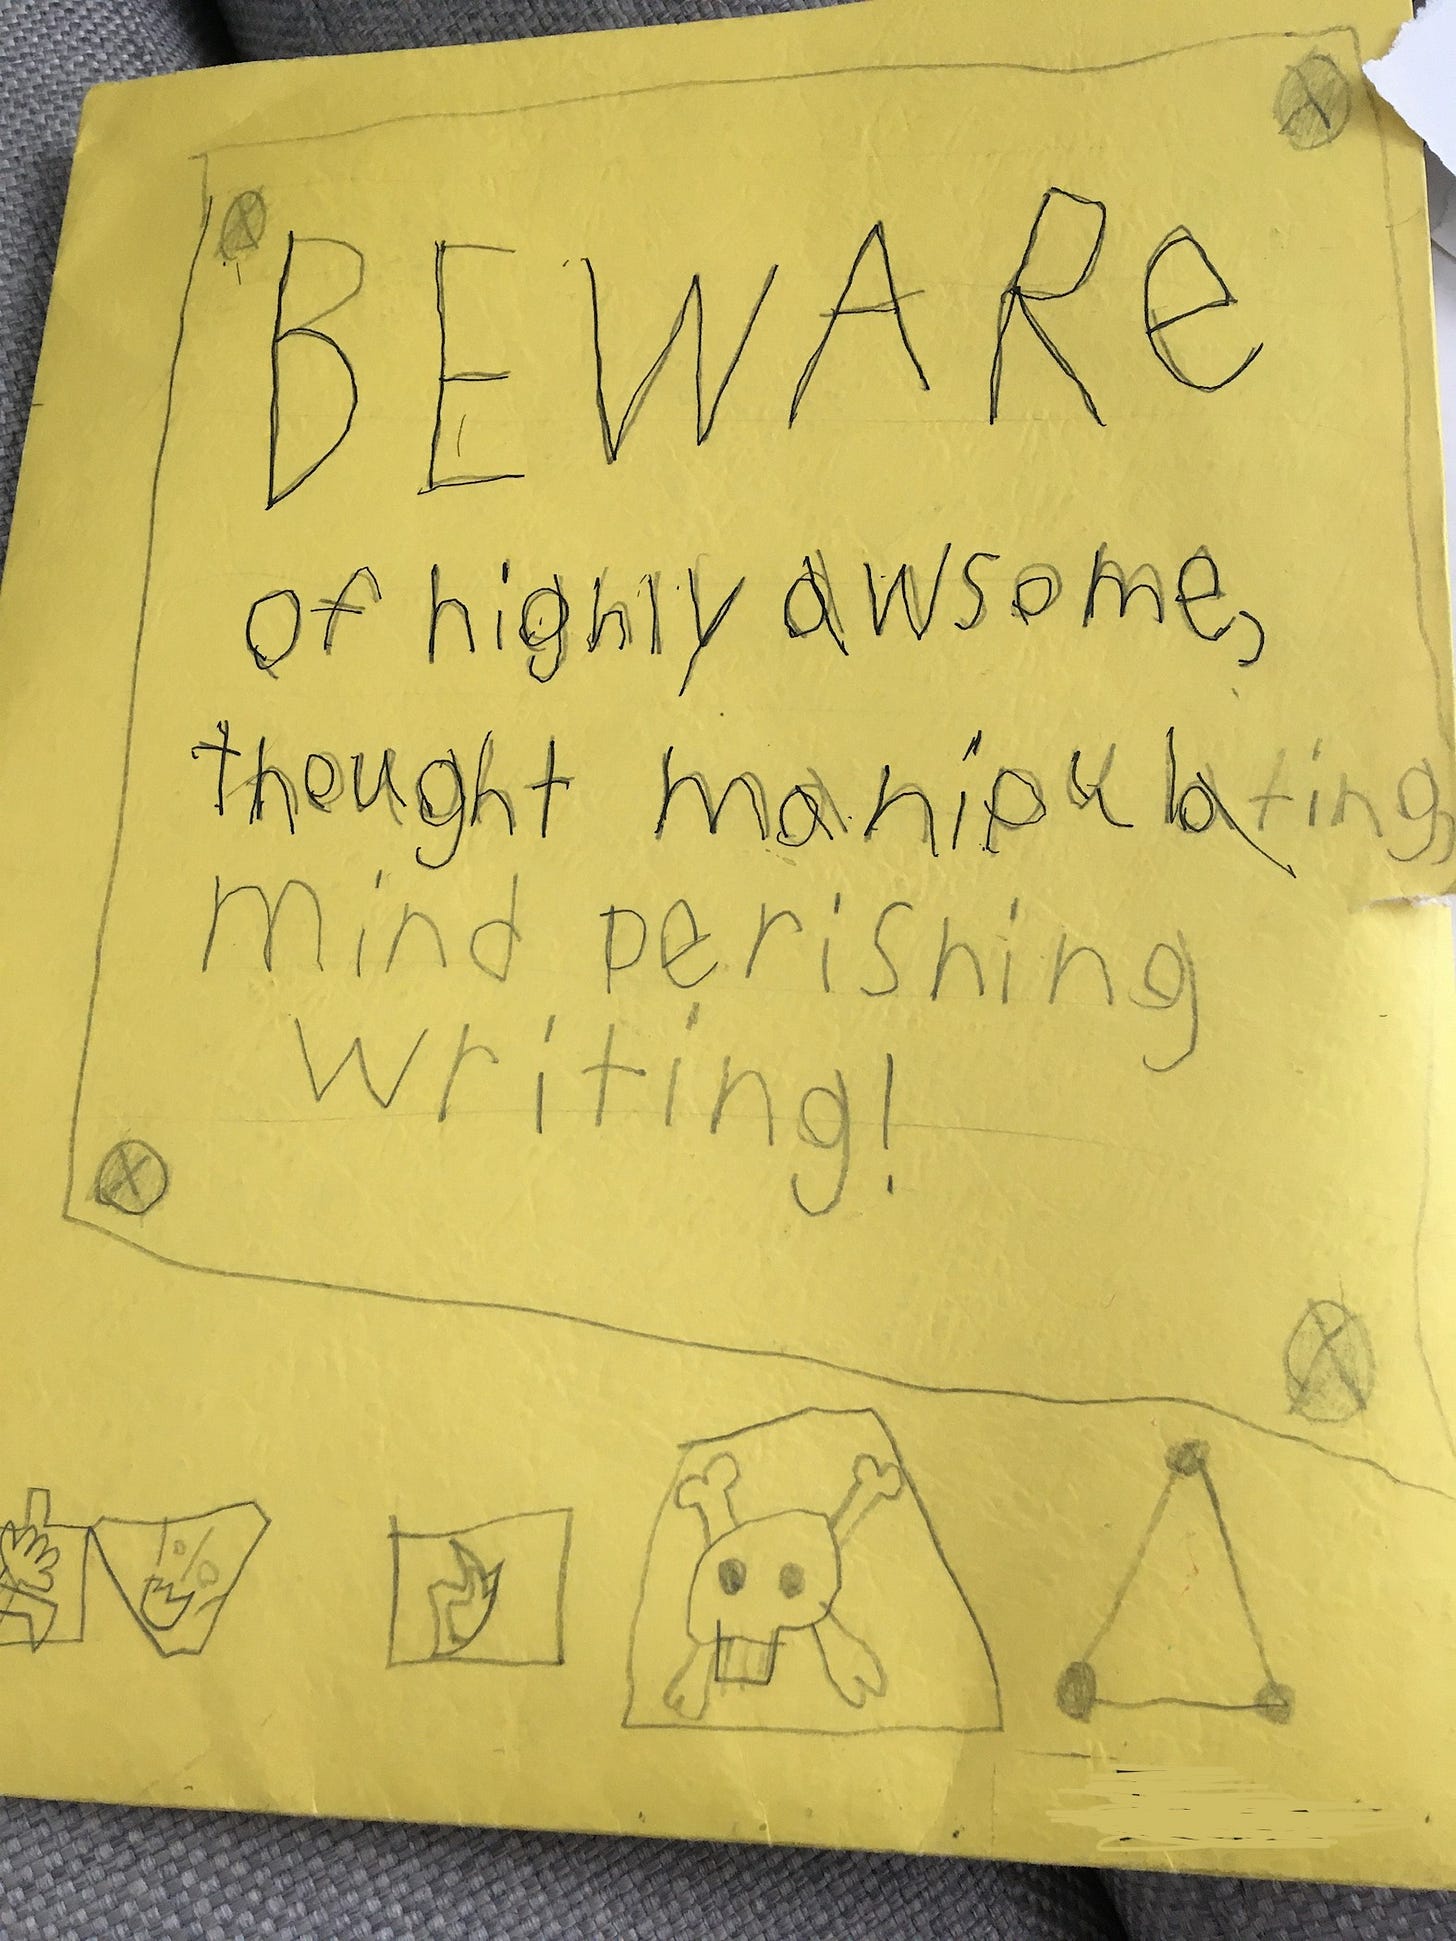 BEWARe
of highly awsome,
thought manipulating,
mind perishing
writing!